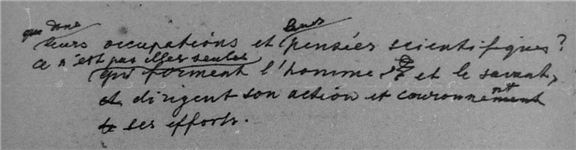 que dans leurs
leurs occupations et pensées scientifiques?
Ce n'est pas elles seules
qui forment l'homme et le savant,
et dirigent son action et couronnent
ses efforts.